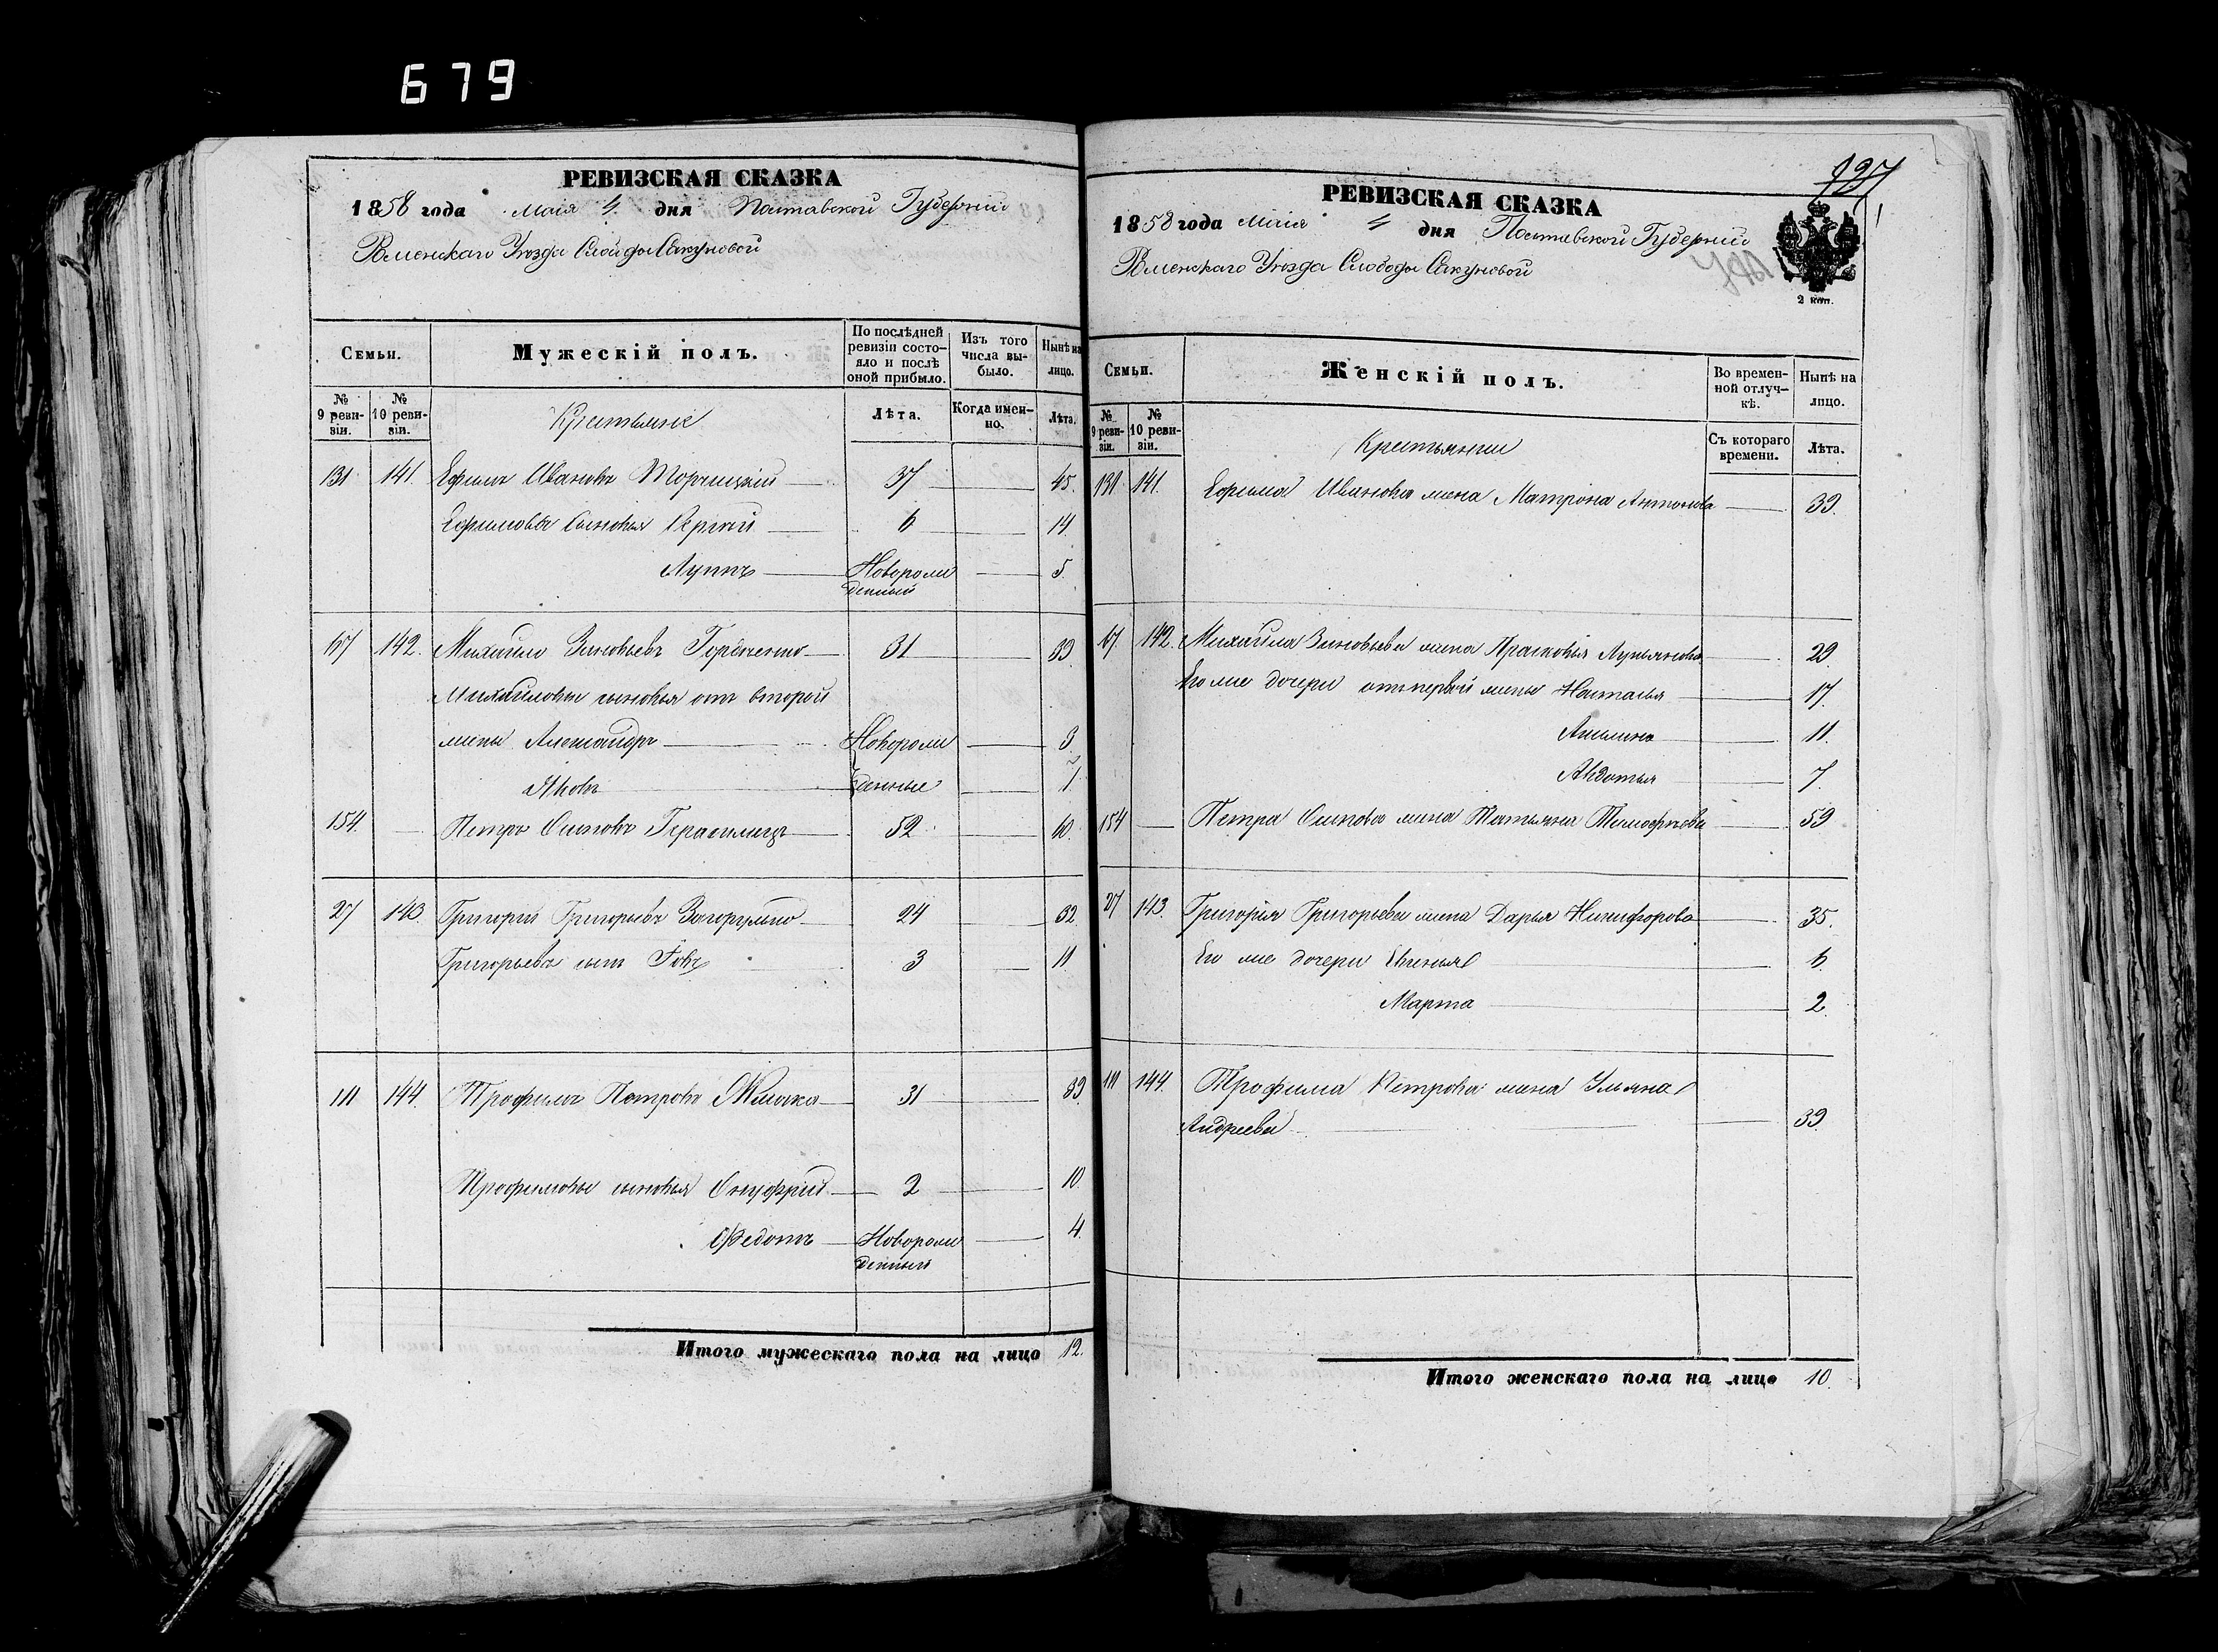 679
РЕВИЗСКАЯ СКАЗКА
1858 года Маія 4 дня Полтавской Губерніи
Роменскаго Уѣзда Слободы Сакуновой
Семьи.
Мужескій полъ.
По послѣдней ревизіи состояло и послѣ оной прибыло.
Изъ того числа выбыло.
Нынѣ на лицо.
№ 9 ревизіи.
№ 10 ревизіи.
Крестьяне
Лѣта.
Когда именно.
Лѣта.
131 141. Ефимъ Ивановъ 37 45.
Ефимовы сыновья Сергій 6 14.
Луппъ Новорожденный 5.
67 142. Михайло Зиновьевъ 31 39.
Михайловы сыновья отъ второй
жены Александръ Новорож 3
Яковъ денные 1
154. Петръ Осиповъ 52 60.
27 143. Григорій Григорьевъ 24 32.
Григорьевъ сынъ Іовъ 3 11
111 144. Трофимъ Петровъ 31 39
Трофимовы сыновья Онуфрій 2 10
Федотъ Новорожденный 4.
Итого мужескаго пола на лицо 12.
РЕВИЗСКАЯ СКАЗКА
1858 года Маія 4 дня Полтавской Губерніи
Роменскаго Уѣзда Слободы Сакуновой
2 коп.
Семьи.
Женскій полъ.
Во временной отлучкѣ.
Нынѣ на лицо.
№ 9 ревизіи.
№ 10 ревизіи.
Крестьянки
Съ котораго времени.
Лѣта.
131 141. Ефима Иванова жена Матрона Антонова 39.
67. 142. Михайла Зиновьева жена Прасковья Лукьянова 29
Его же дочери отъ первой жены Наталья 17.
Акилина 11.
Авдотья 7.
154 Петра Осипова жена Татьяна Тимофѣева 59
27 143. Григорія Григорьева жена Дарья Никифорова 35.
Его же дочери Евгенья 6.
Марта 2
111 144. Трофима Петрова жена Ульяна
Андреева 39
Итого женскаго пола на лицо 10.